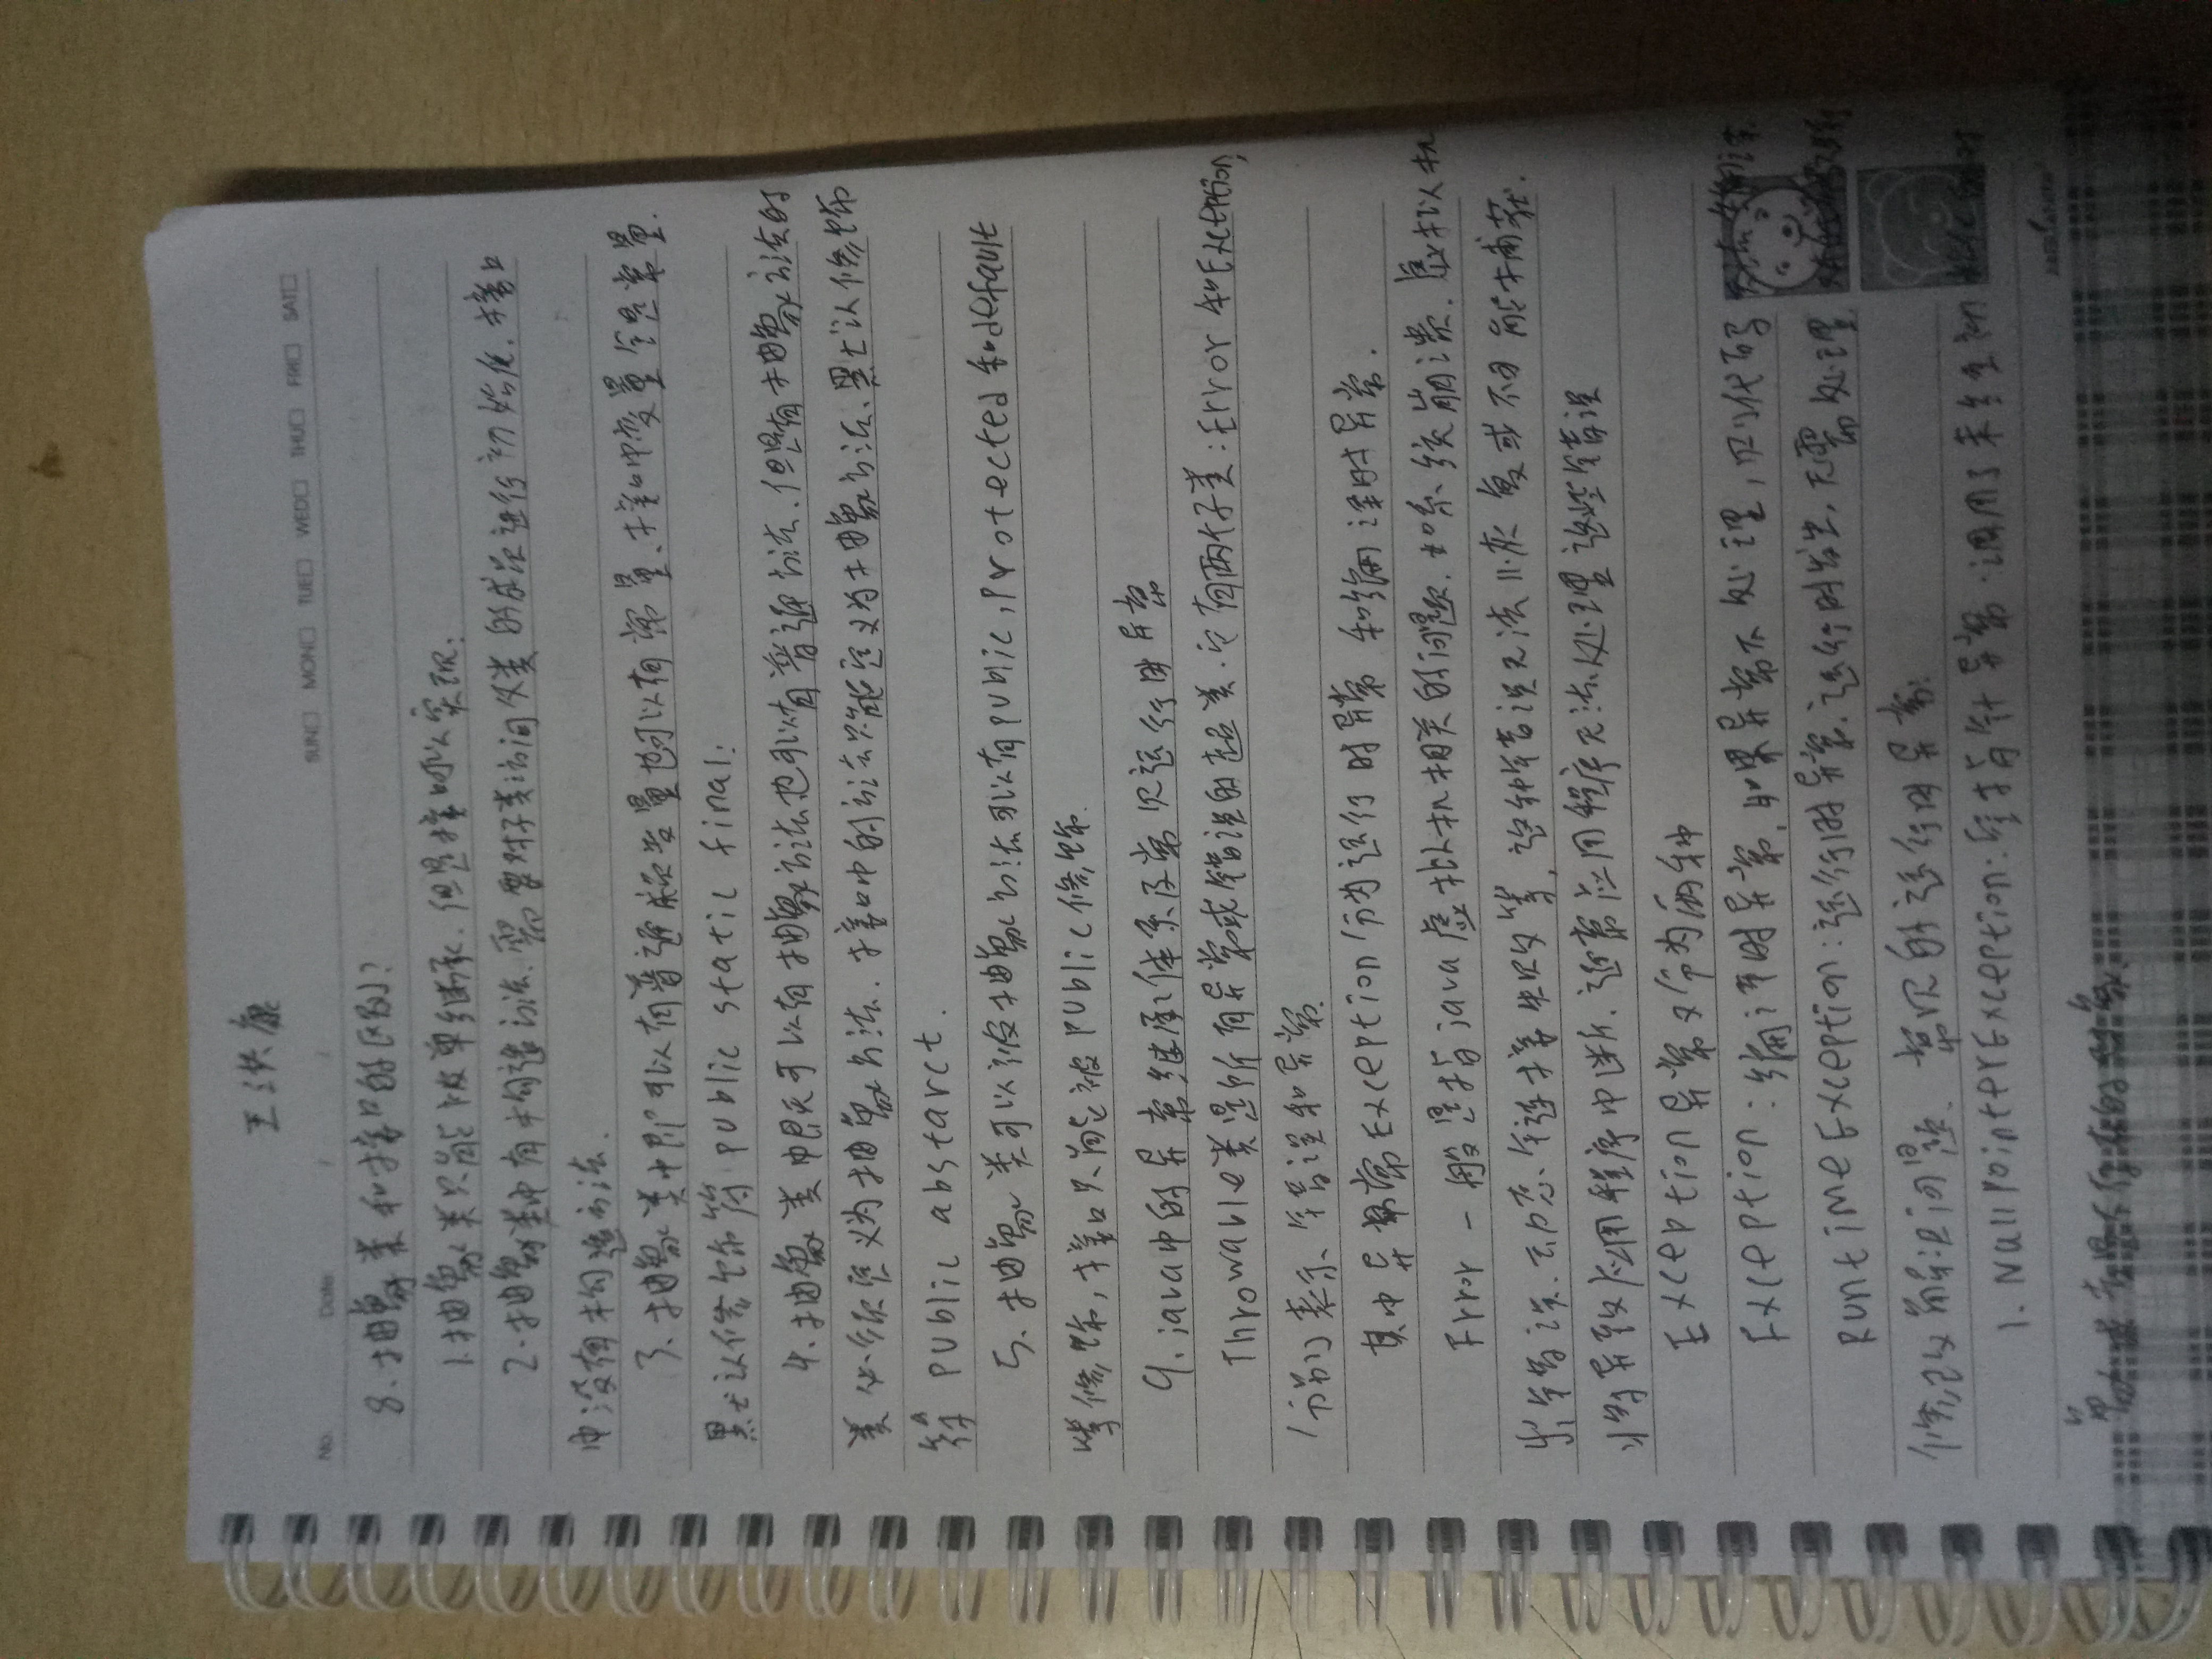 王洪康
No. Date / / SUN□ MON□ TUE□ WED□ THU□ FRI□ SAT□
8.抽象类和接口的区别?
1.抽象类只能被单继承.但是接口可以实现;
2.抽象类中有构造方法.需要对子类访问父类的成员进行初始化.接口
中没有构造方法.
3.抽象类中即可以有普通成员变量也可以有常量.接口中变量全是常量.
默认修饰符public static final;
4.抽象类中既可以有抽象方法也可以有普通方法.但是有抽象方法的
类必须定义为抽象方法.接口中的方法只能定义为抽象方法.默认修饰
符public abstarct.
5.抽象类可以及抽象方法可以有public,protected和default
等修饰,接口只能被public修饰.
9.java中的异常继承体系及常见运行时异常
Throwable类是所有异常或错误的超类.它有两个子类:Error和Exception,
分别表示错误和异常.
其中异常Exception分为运行时异常和编译时异常.
Error-一般是指java虚拟机相关的问题.如系统崩溃.虚拟机
出错误.动态链接失败等,这种错误无法恢复或不可能捕获.
将导致应用程序中断.通常应用程序无法处理这些错误
Exception异常又分为两种
Exception:编译时异常,如果异常不处理,则代码
RuntimeException:运行时异常.运行时发生,无需处理
常见的运行时异常:
1.NullpointerException:空指针异常.调用了未经初